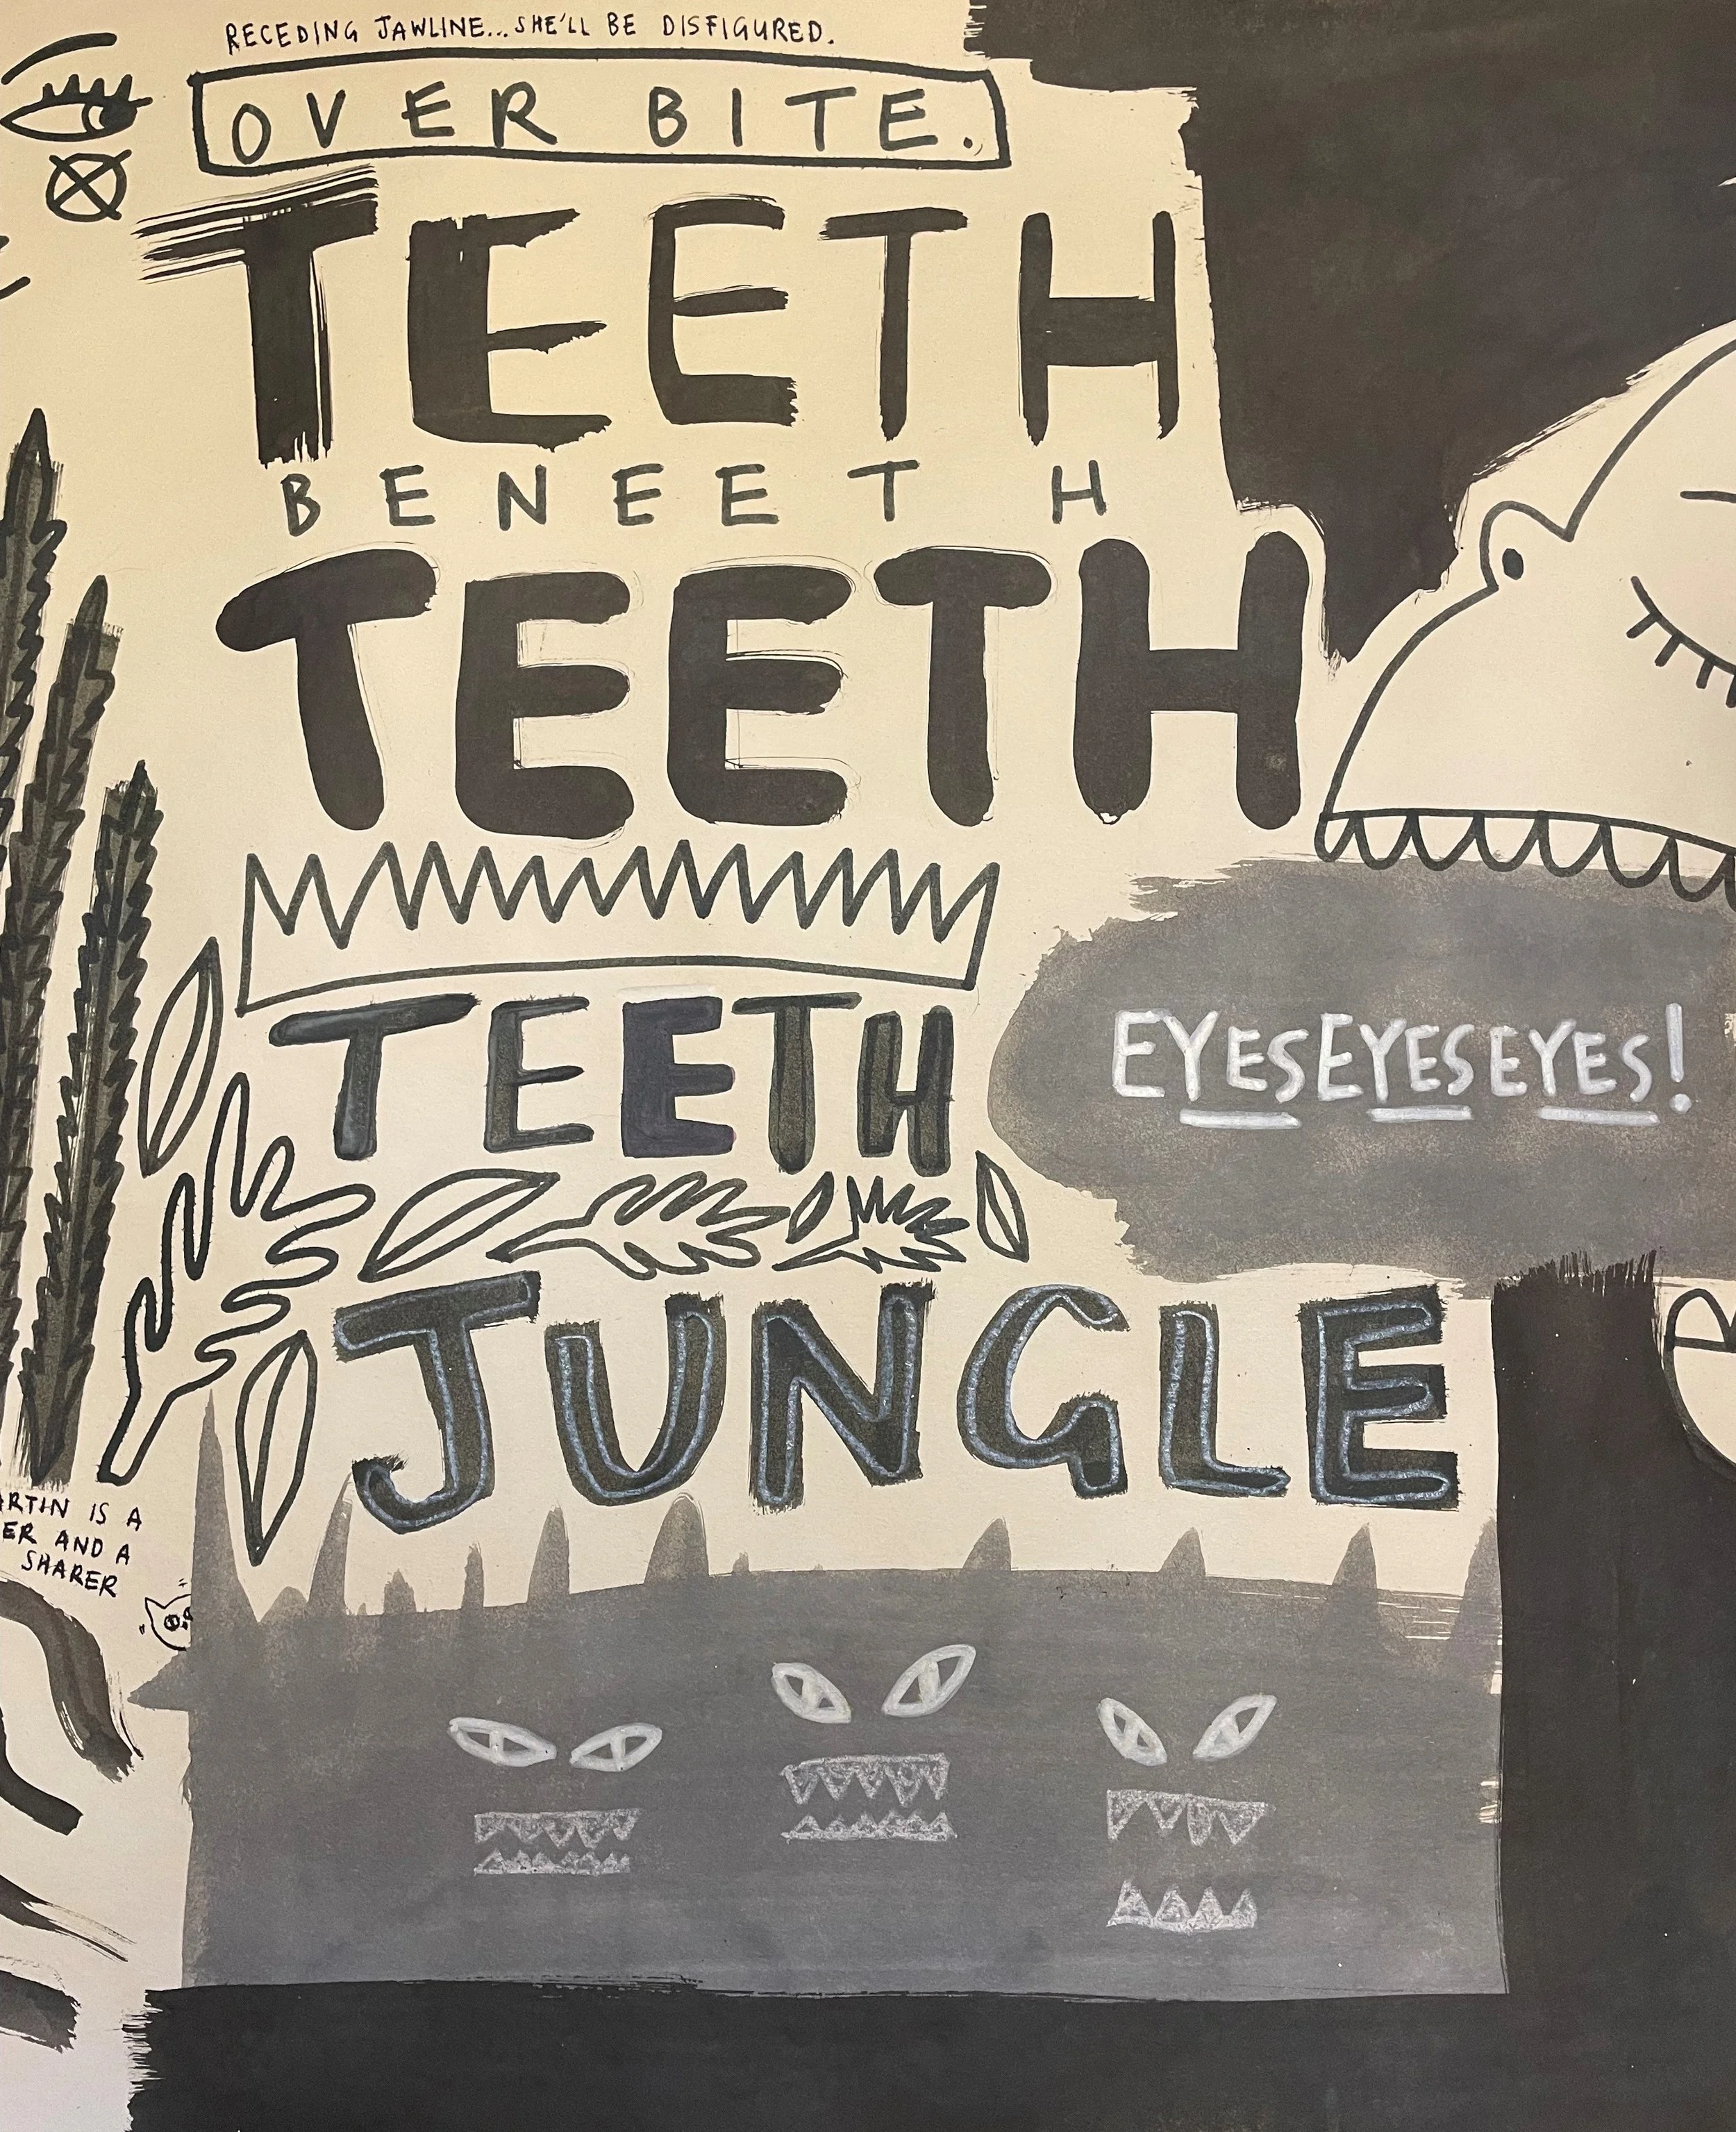 RECEDING JAWLINE...SHE'LL BE DISFIGURED.
OVER BITE.
TEETH
BENEETH
TEETH
TEETH
EYESEYESEYES!
JUNGLE
IS A
AND A
SHARER